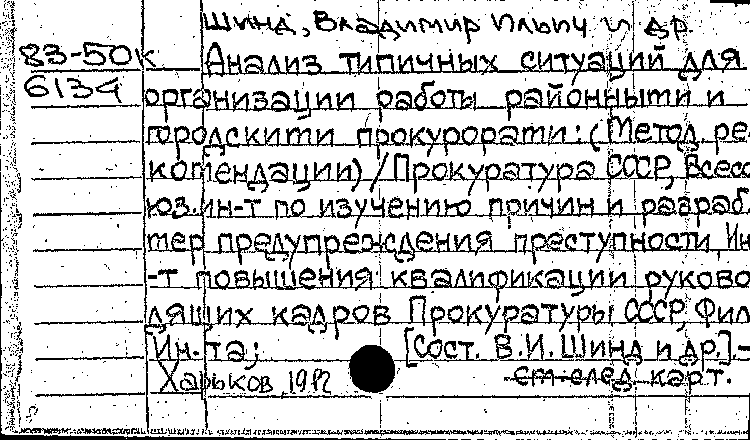 Шинд, Владимир Ильич и др.
83-50к Анализ типичных ситуаций для
6134 организации работы районными и
городскими прокурорами: (Метод. ре
комендации) / Прокуратура СССР, Всесо
юз. ин-т по изучению причин и разраб.
мер предупреждения преступности, Ин
-т повышения квалификации руково
дящих кадров Прокуратуры СССР, Фил.
Ин-та; [Сост. В.И. Шинд и др.].-
Харьков, 1982 См. след. карт.